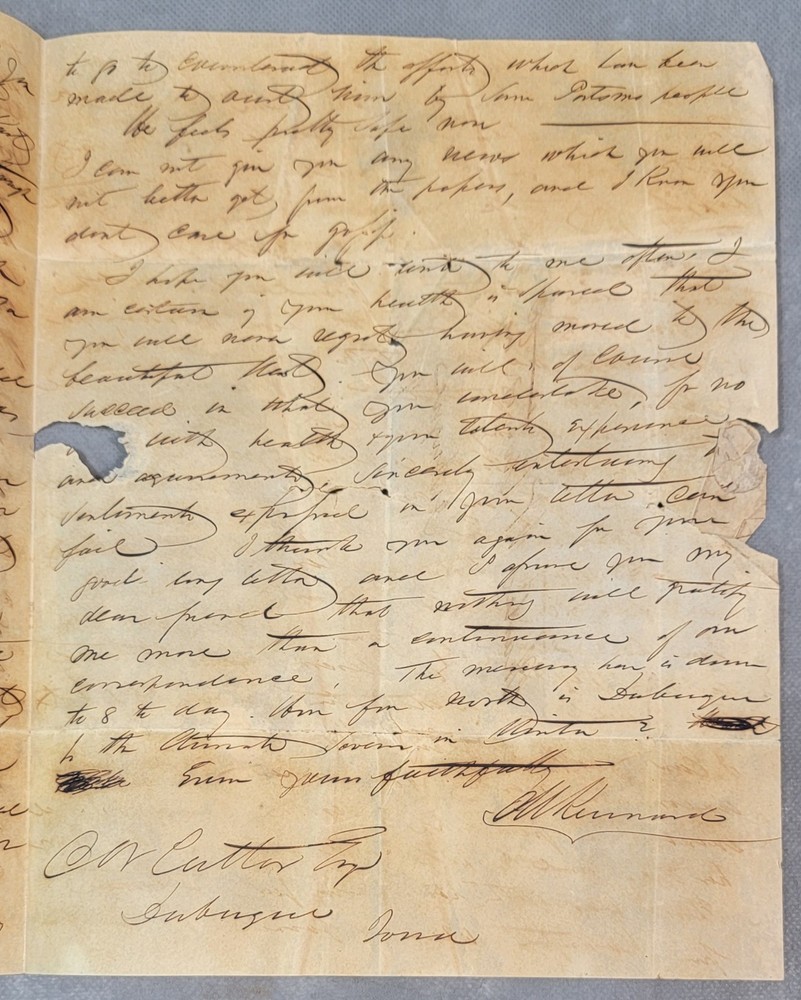 to go to counteract the efforts which have been
made to oust him by some Portsmo people
He feels pretty safe now
I can not give you any news which you will
not better get from the papers, and I Know you
dont care for gossip.
I hope you will write to me often. I
am certain if your health is spared that
you will never regret having moved to the
beautiful West. You will of course
succeed in what you undertake, for no
with health & your talents experience
and acquirements, sincerely entertaining
sentiments expressed in your letter can
fail I thank you again for your
good long letter and I assure you my
dear friend that nothing will gratify
me more than a continuance of our
correspondence. The mercury here is down
to 8 to day. How far north is Dubuque
Is the climate severe in Winter?
Ever yours faithfully
Kennard
Cutter Esq
Dubuque
Iowa